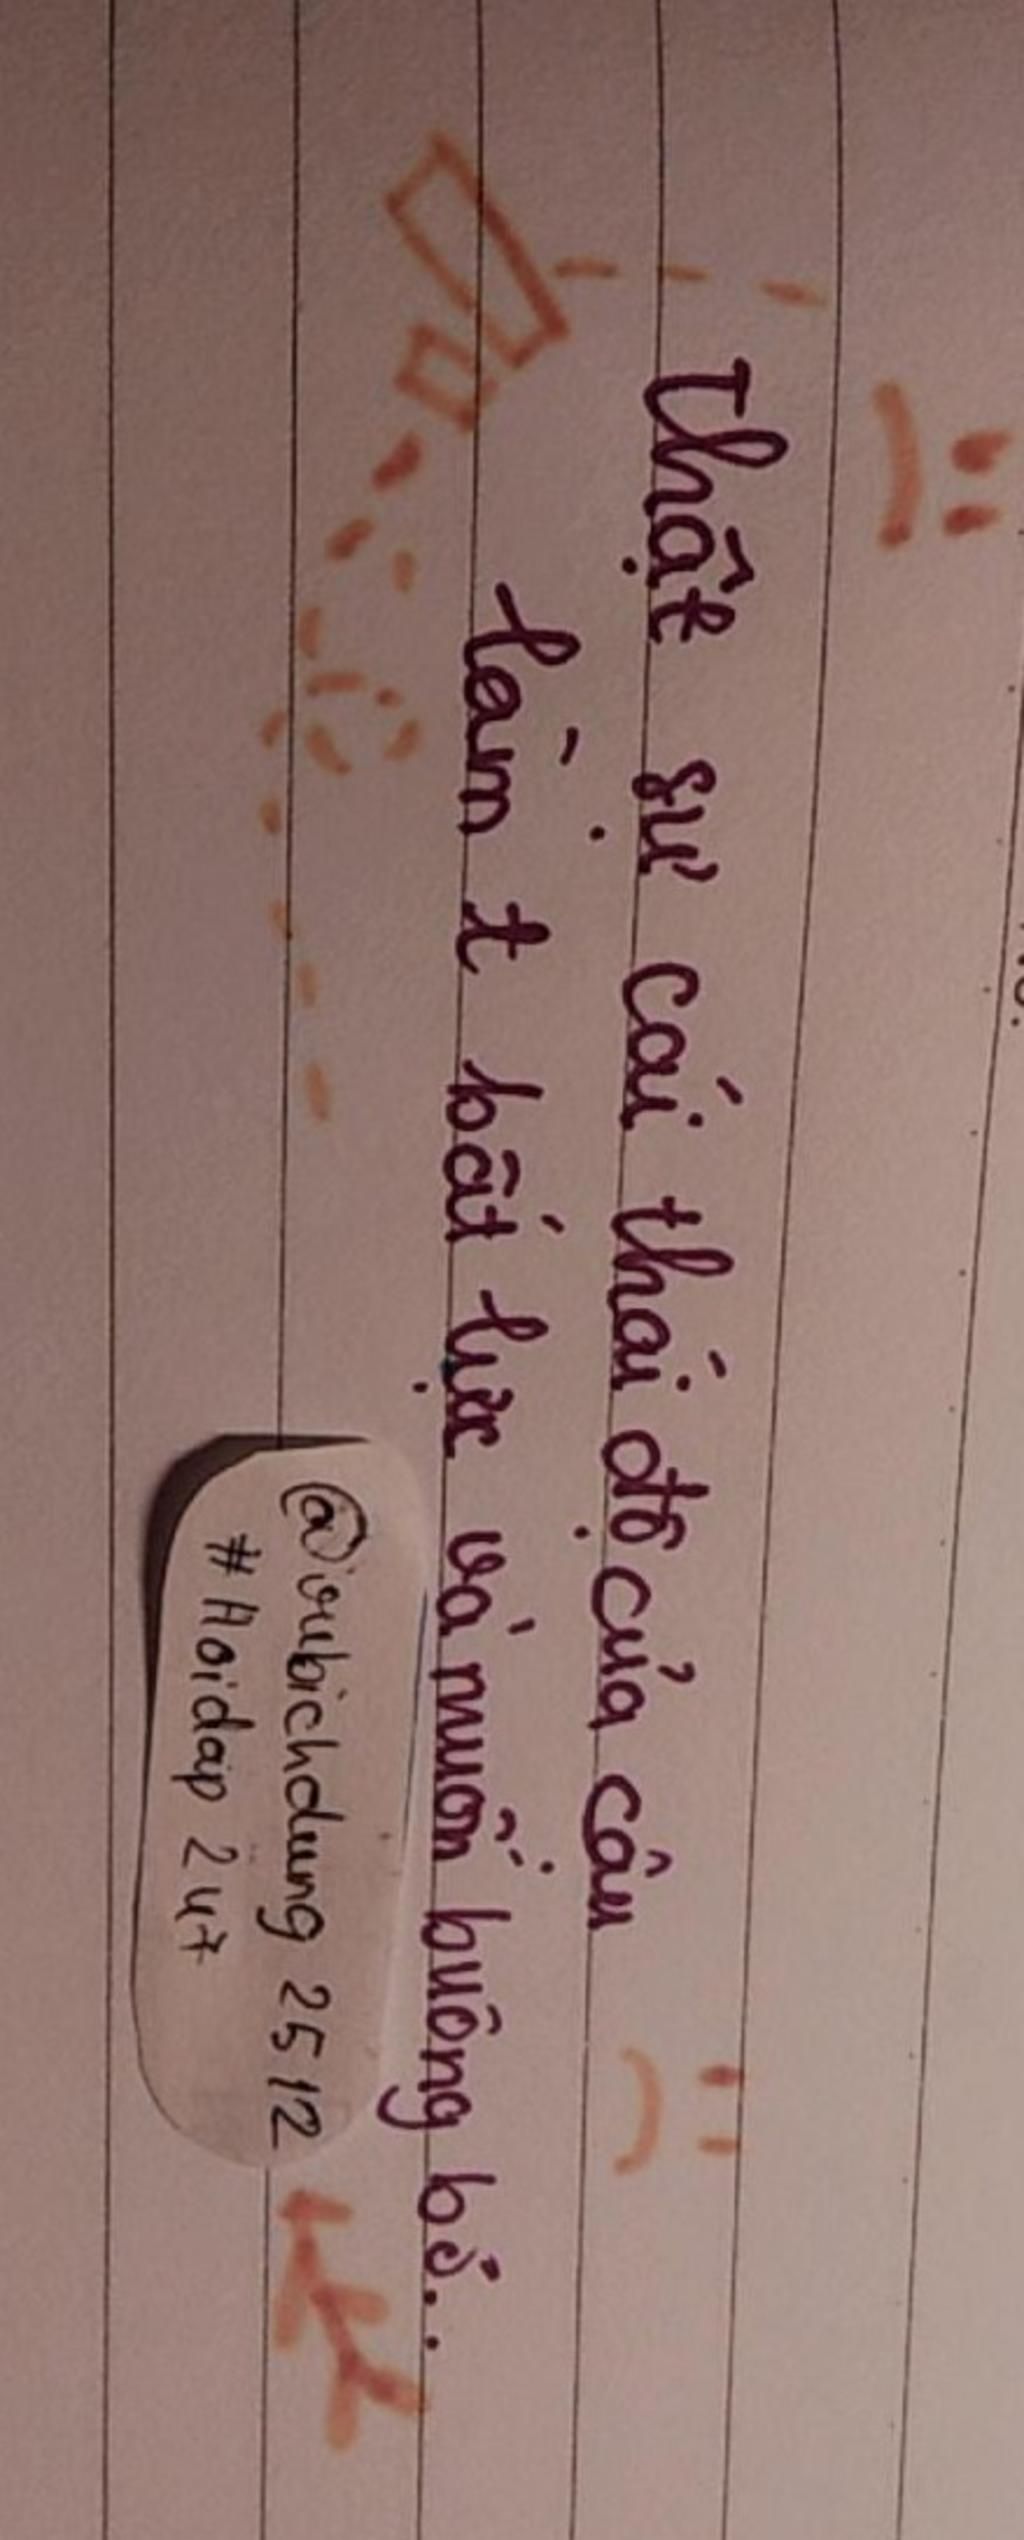 Thật sự cái thái độ của cậu
làm t bất lực và muốn buông bỏ..
#Hoidap 247